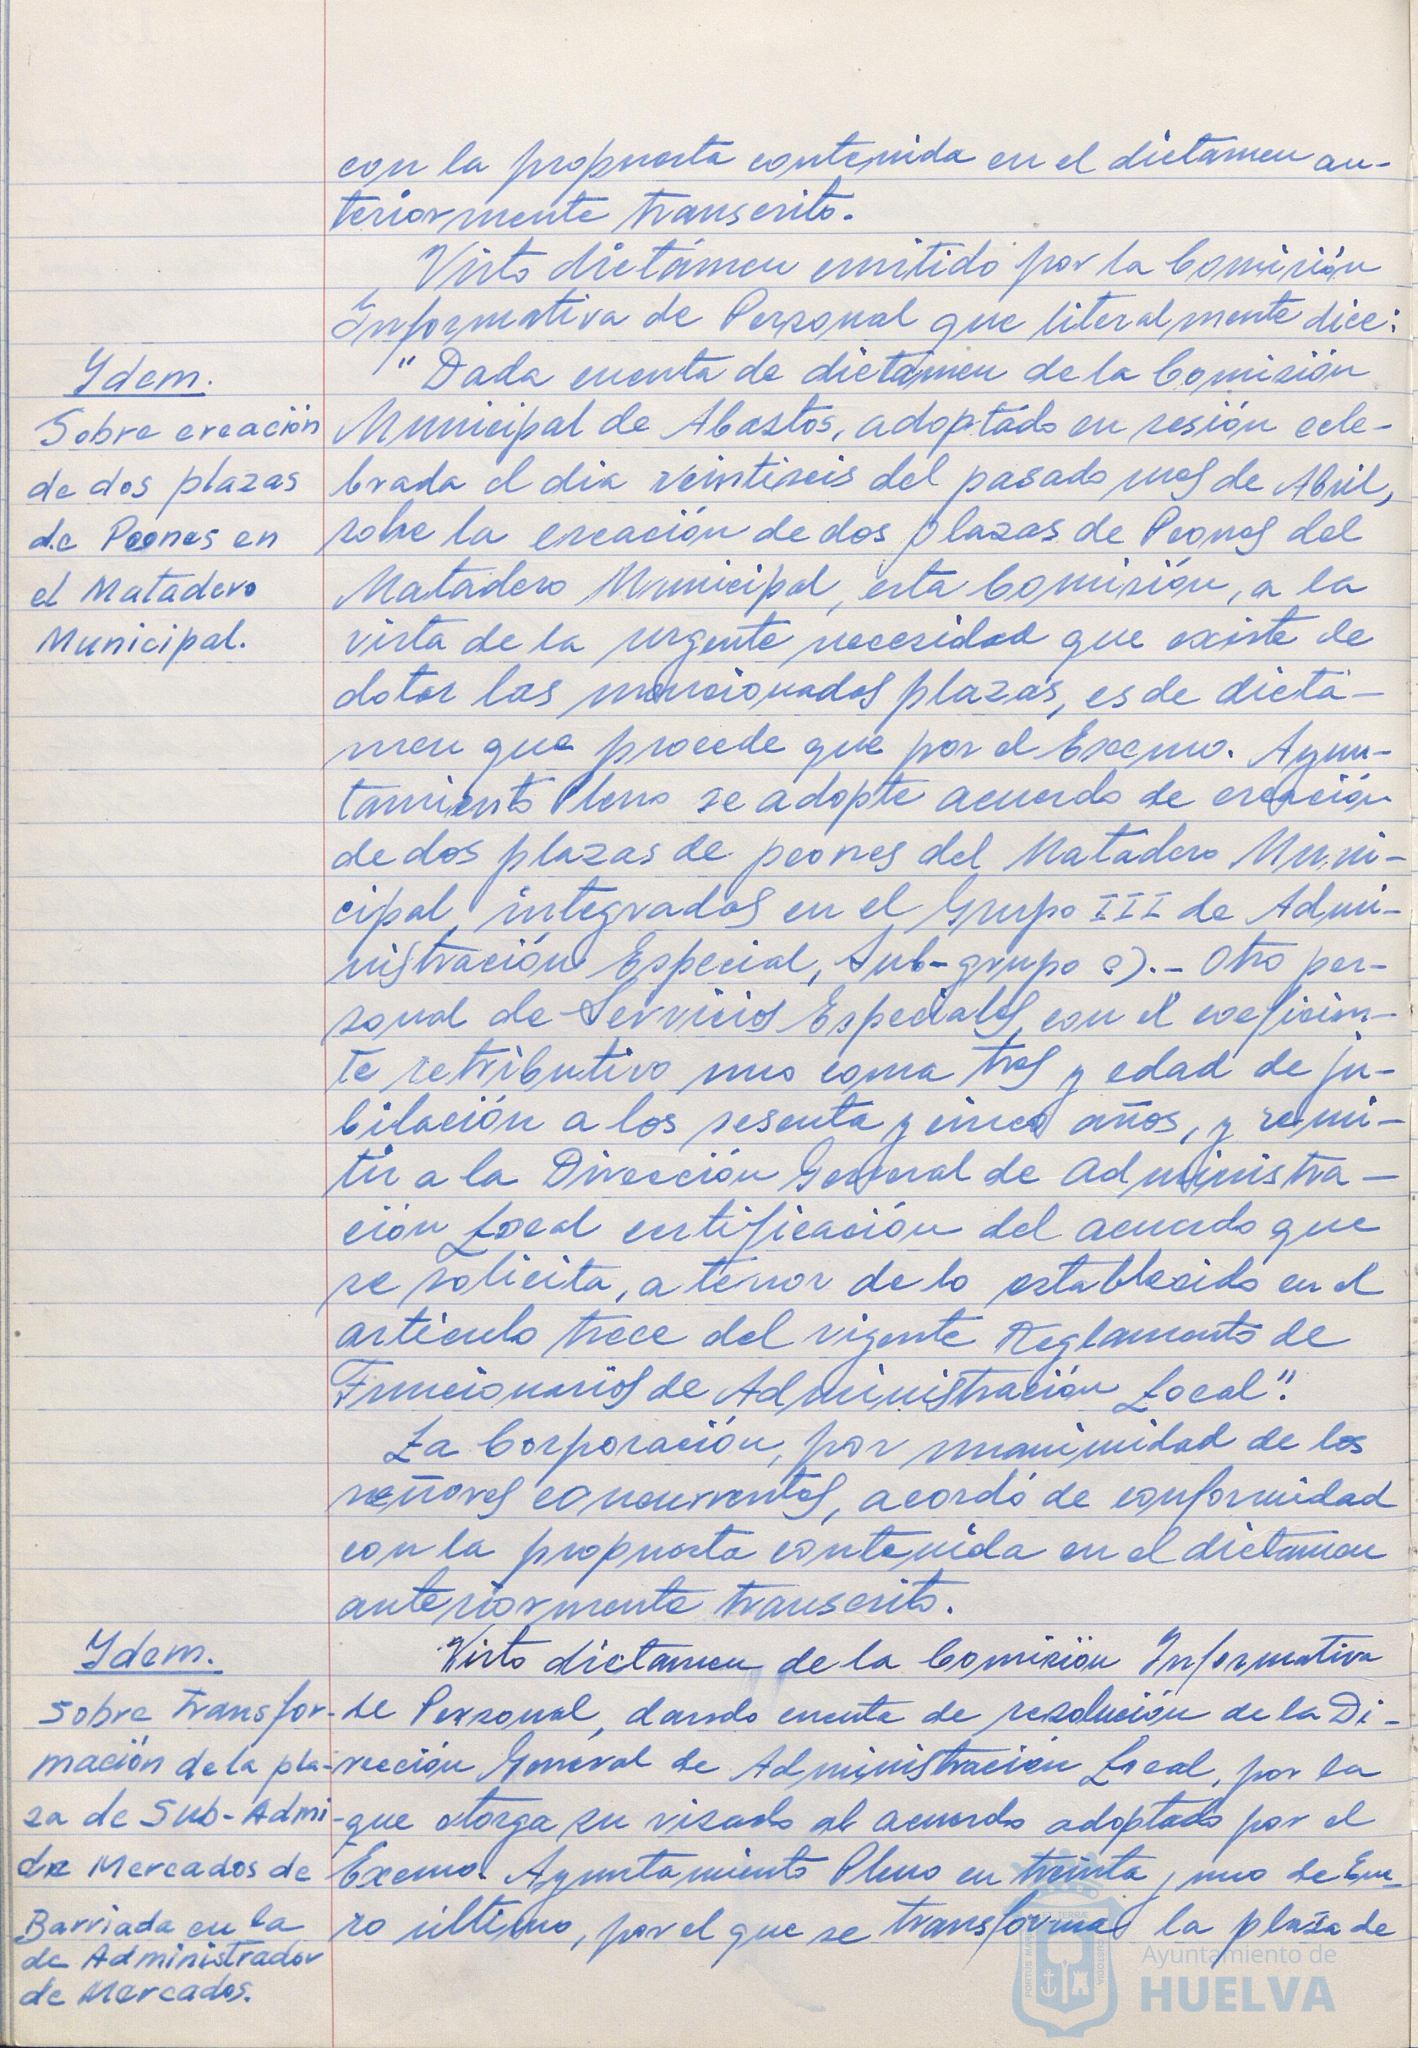 con la propuesta contenida en el dictamen an-
teriormente transcrito.
Visto dictámen emitido por la Comisión
Informativa de Personal que literalmente dice:
Ydem.
Sobre creación
de dos plazas
de Peones en
el Matadero
Municipal.
"Dada cuenta de dictamen de la Comisión
Municipal de Abastos, adoptado en sesión cele-
brada el dia veintiseis del pasado mes de Abril,
sobre la creación de dos plazas de Peones del
Matadero Municipal, esta Comisión, a la
vista de la urgente necesidad que existe de
dotar las mencionadas plazas, es de dicta-
men que procede que por el Excmo. Ayun-
tamiento Pleno se adopte acuerdo de creación
de dos plazas de peones del Matadero Muni-
cipal, integrados en el Grupo III de Admi-
nistración Especial, Sub-grupo c).- Otro per-
sonal de Servicios Especiales, con el coeficien-
te retributivo uno coma tres y edad de ju-
bilación a los sesenta y cinco años, y remi-
tir a la Dirección General de Administra-
ción Local certificación del acuerdo que
se solicita, a tenor de lo establecido en el
artículo trece del vigente Reglamento de
Funcionarios de Administración Local".
La Corporación, por unanimidad de los
señores concurrentes, acordó de conformidad
con la propuesta contenida en el dictamen
anteriormente transcrito.
Ydem.
Sobre transfor-
mación de la pla-
za de Sub-Admi-
de Mercados de
Barriada en la
de Administrador
de Mercados.
Visto dictamen de la Comisión Informativa
de Personal, dando cuenta de resolución de la Di-
rección General de Administración Local, por la
que otorga su visado al acuerdo adoptado por el
Excmo. Ayuntamiento Pleno en treinta y uno de Ene-
ro último, por el que se transforma la plaza de
Ayuntamiento de
HUELVA